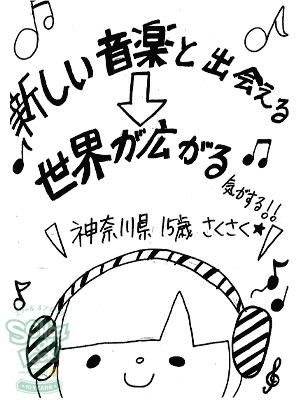 新しい音楽と出会える
世界が広がる
気がする!!
神奈川県 15歳 さくさく★